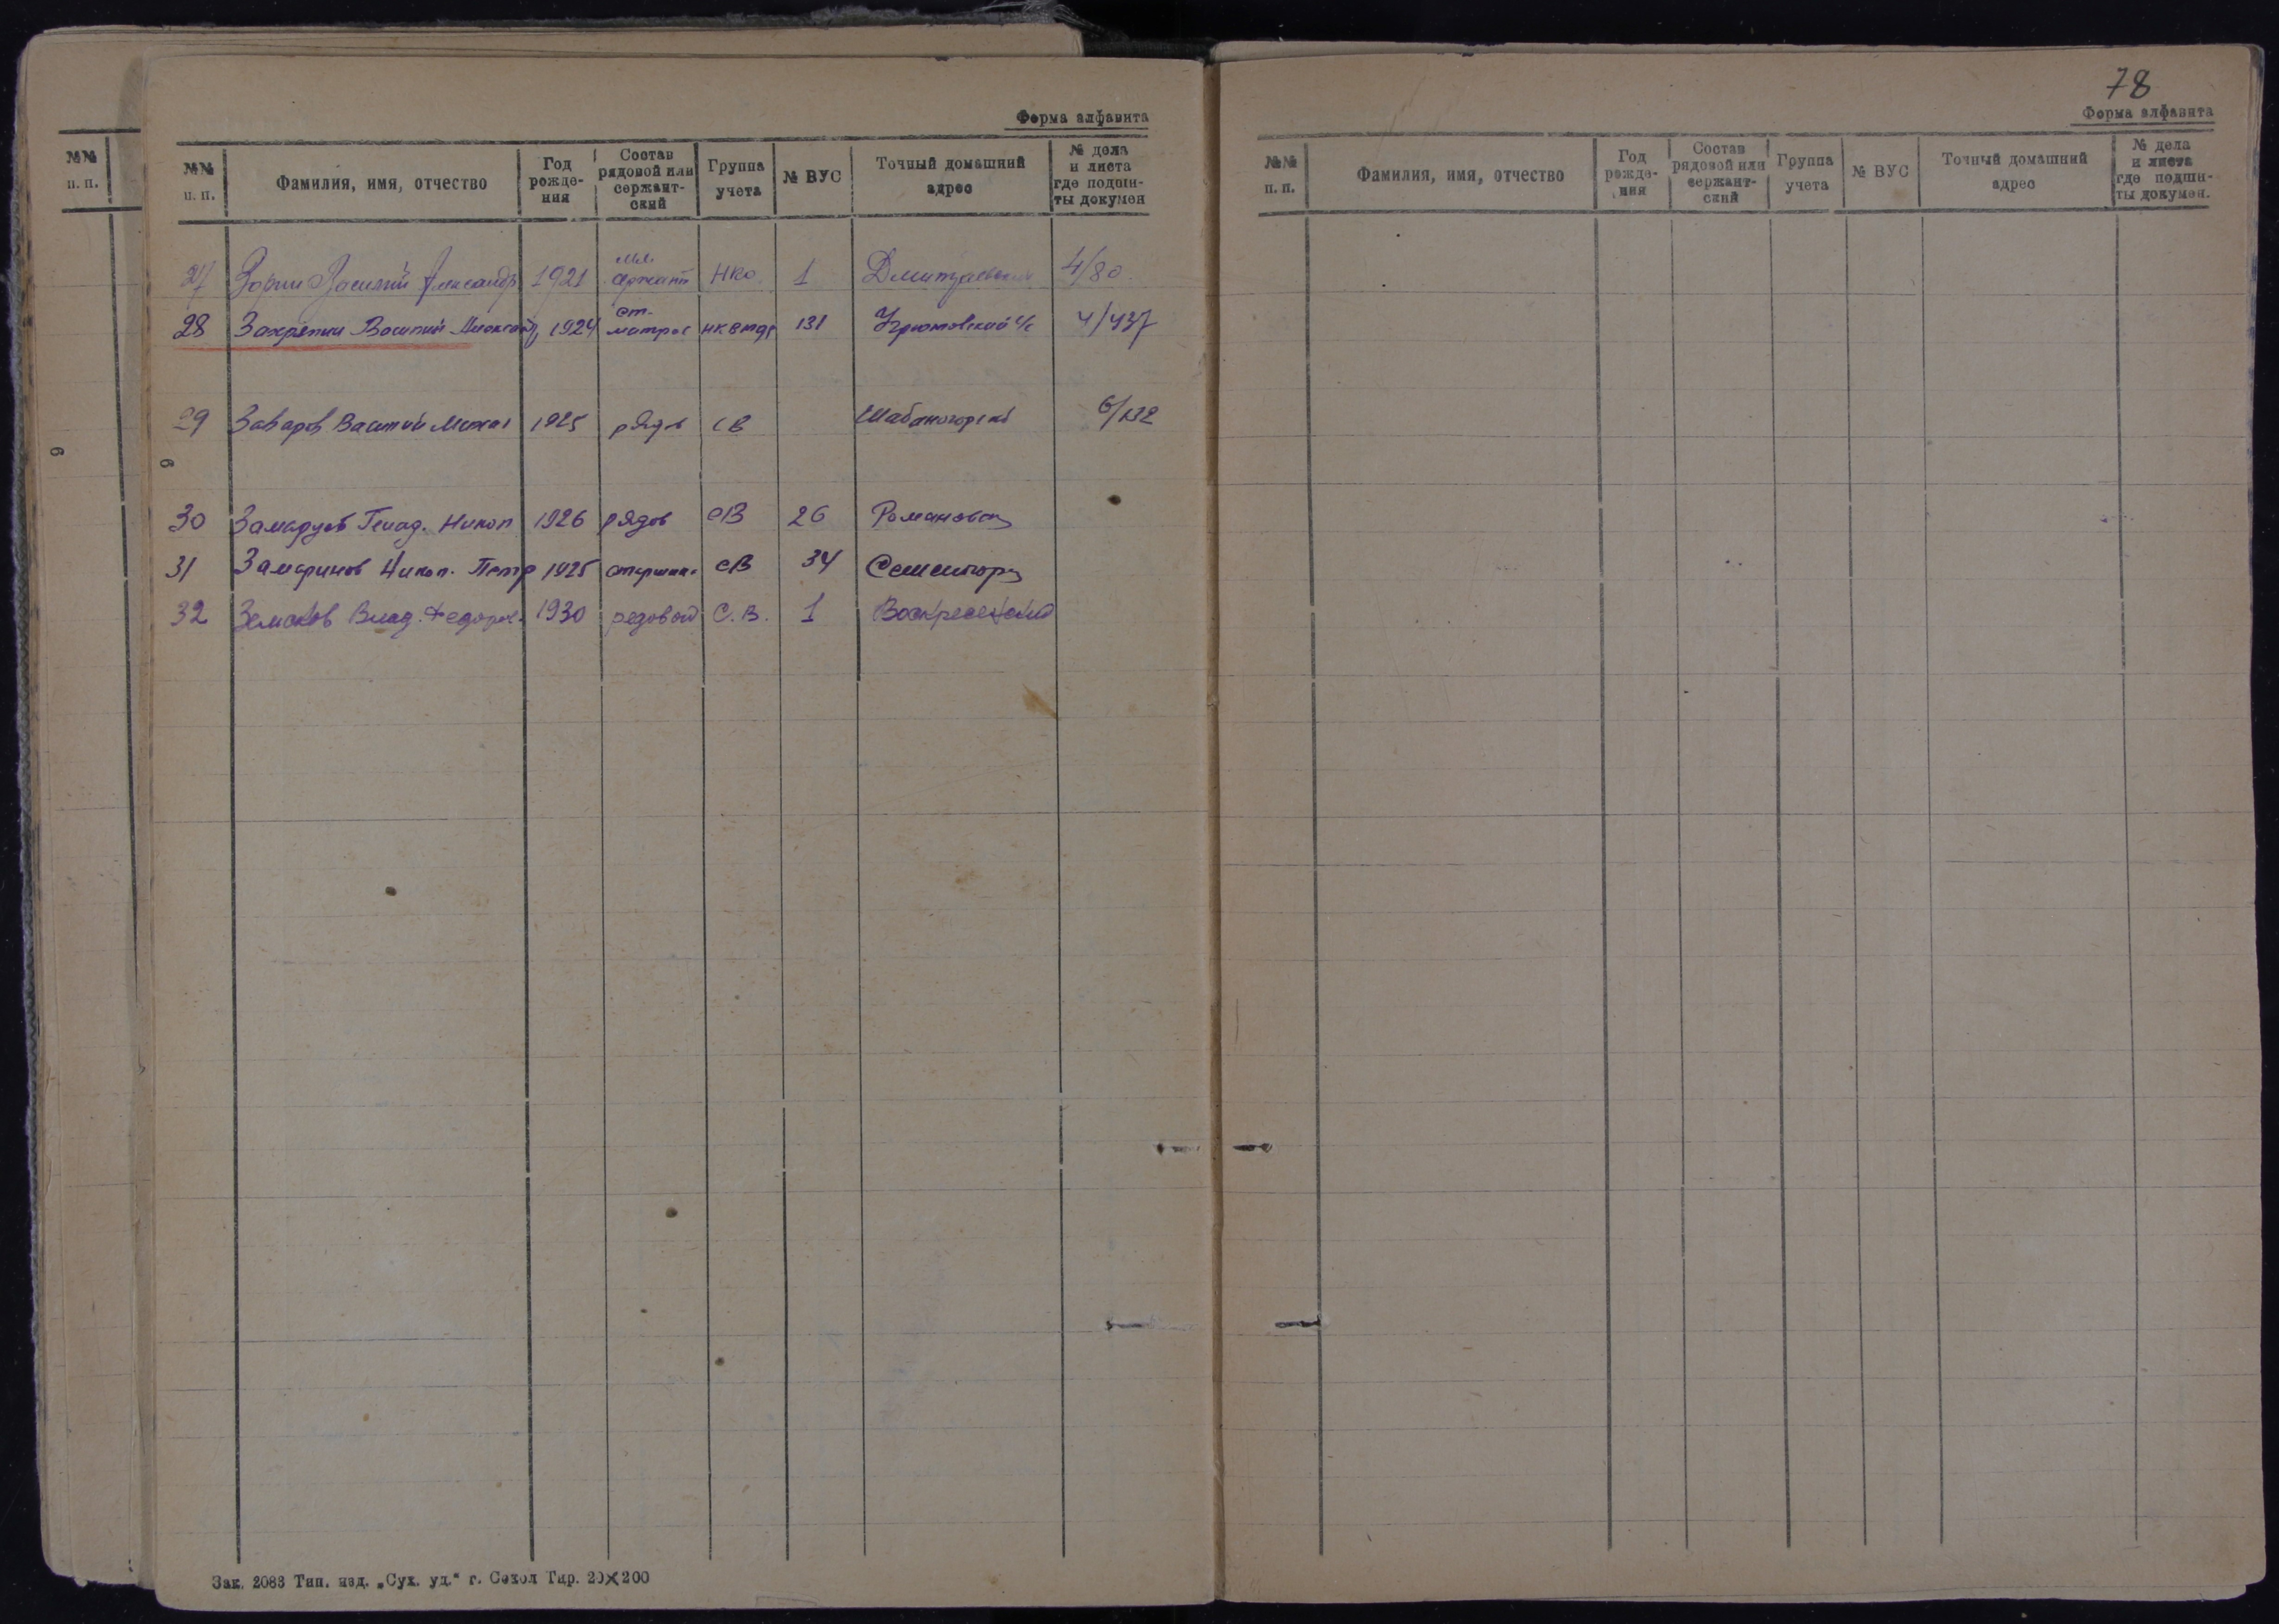 Форма алфавита
№№ п. п.
№№ п. п. Фамилия, имя, отчество Год рожде-ния Состав рядовой или сержант-ский Группа учета № ВУС Точный домашний адрес № дела и листа где подши-ты докумен
27 Зорин Василий Александр 1921 мл. сержант НКО 1 4/80
28 Василий 1924 ст. матрос 131 Угрюмовский с/с 4/437
29 Василий 1925 рядов СВ Шабаногорск 6/132
30 Никол 1926 рядов СВ 26 Романовск
31 Замаринов Никол. Петр 1925 старшин СВ 34 Семигорк
32 Земсков Влад. Федоров. 1930 редовой С.В. 1 Воскресенский
6
6
Зак. 2083 Тип. изд. „Сух. уд." г. Сокол Тир. 20×200
78
Форма алфавита
№№ п. п. Фамилия, имя, отчество Год рожде-ния Состав рядовой или сержант-ский Группа учета № ВУС Точный домашний адрес № дела и листа где подши-ты докумен.